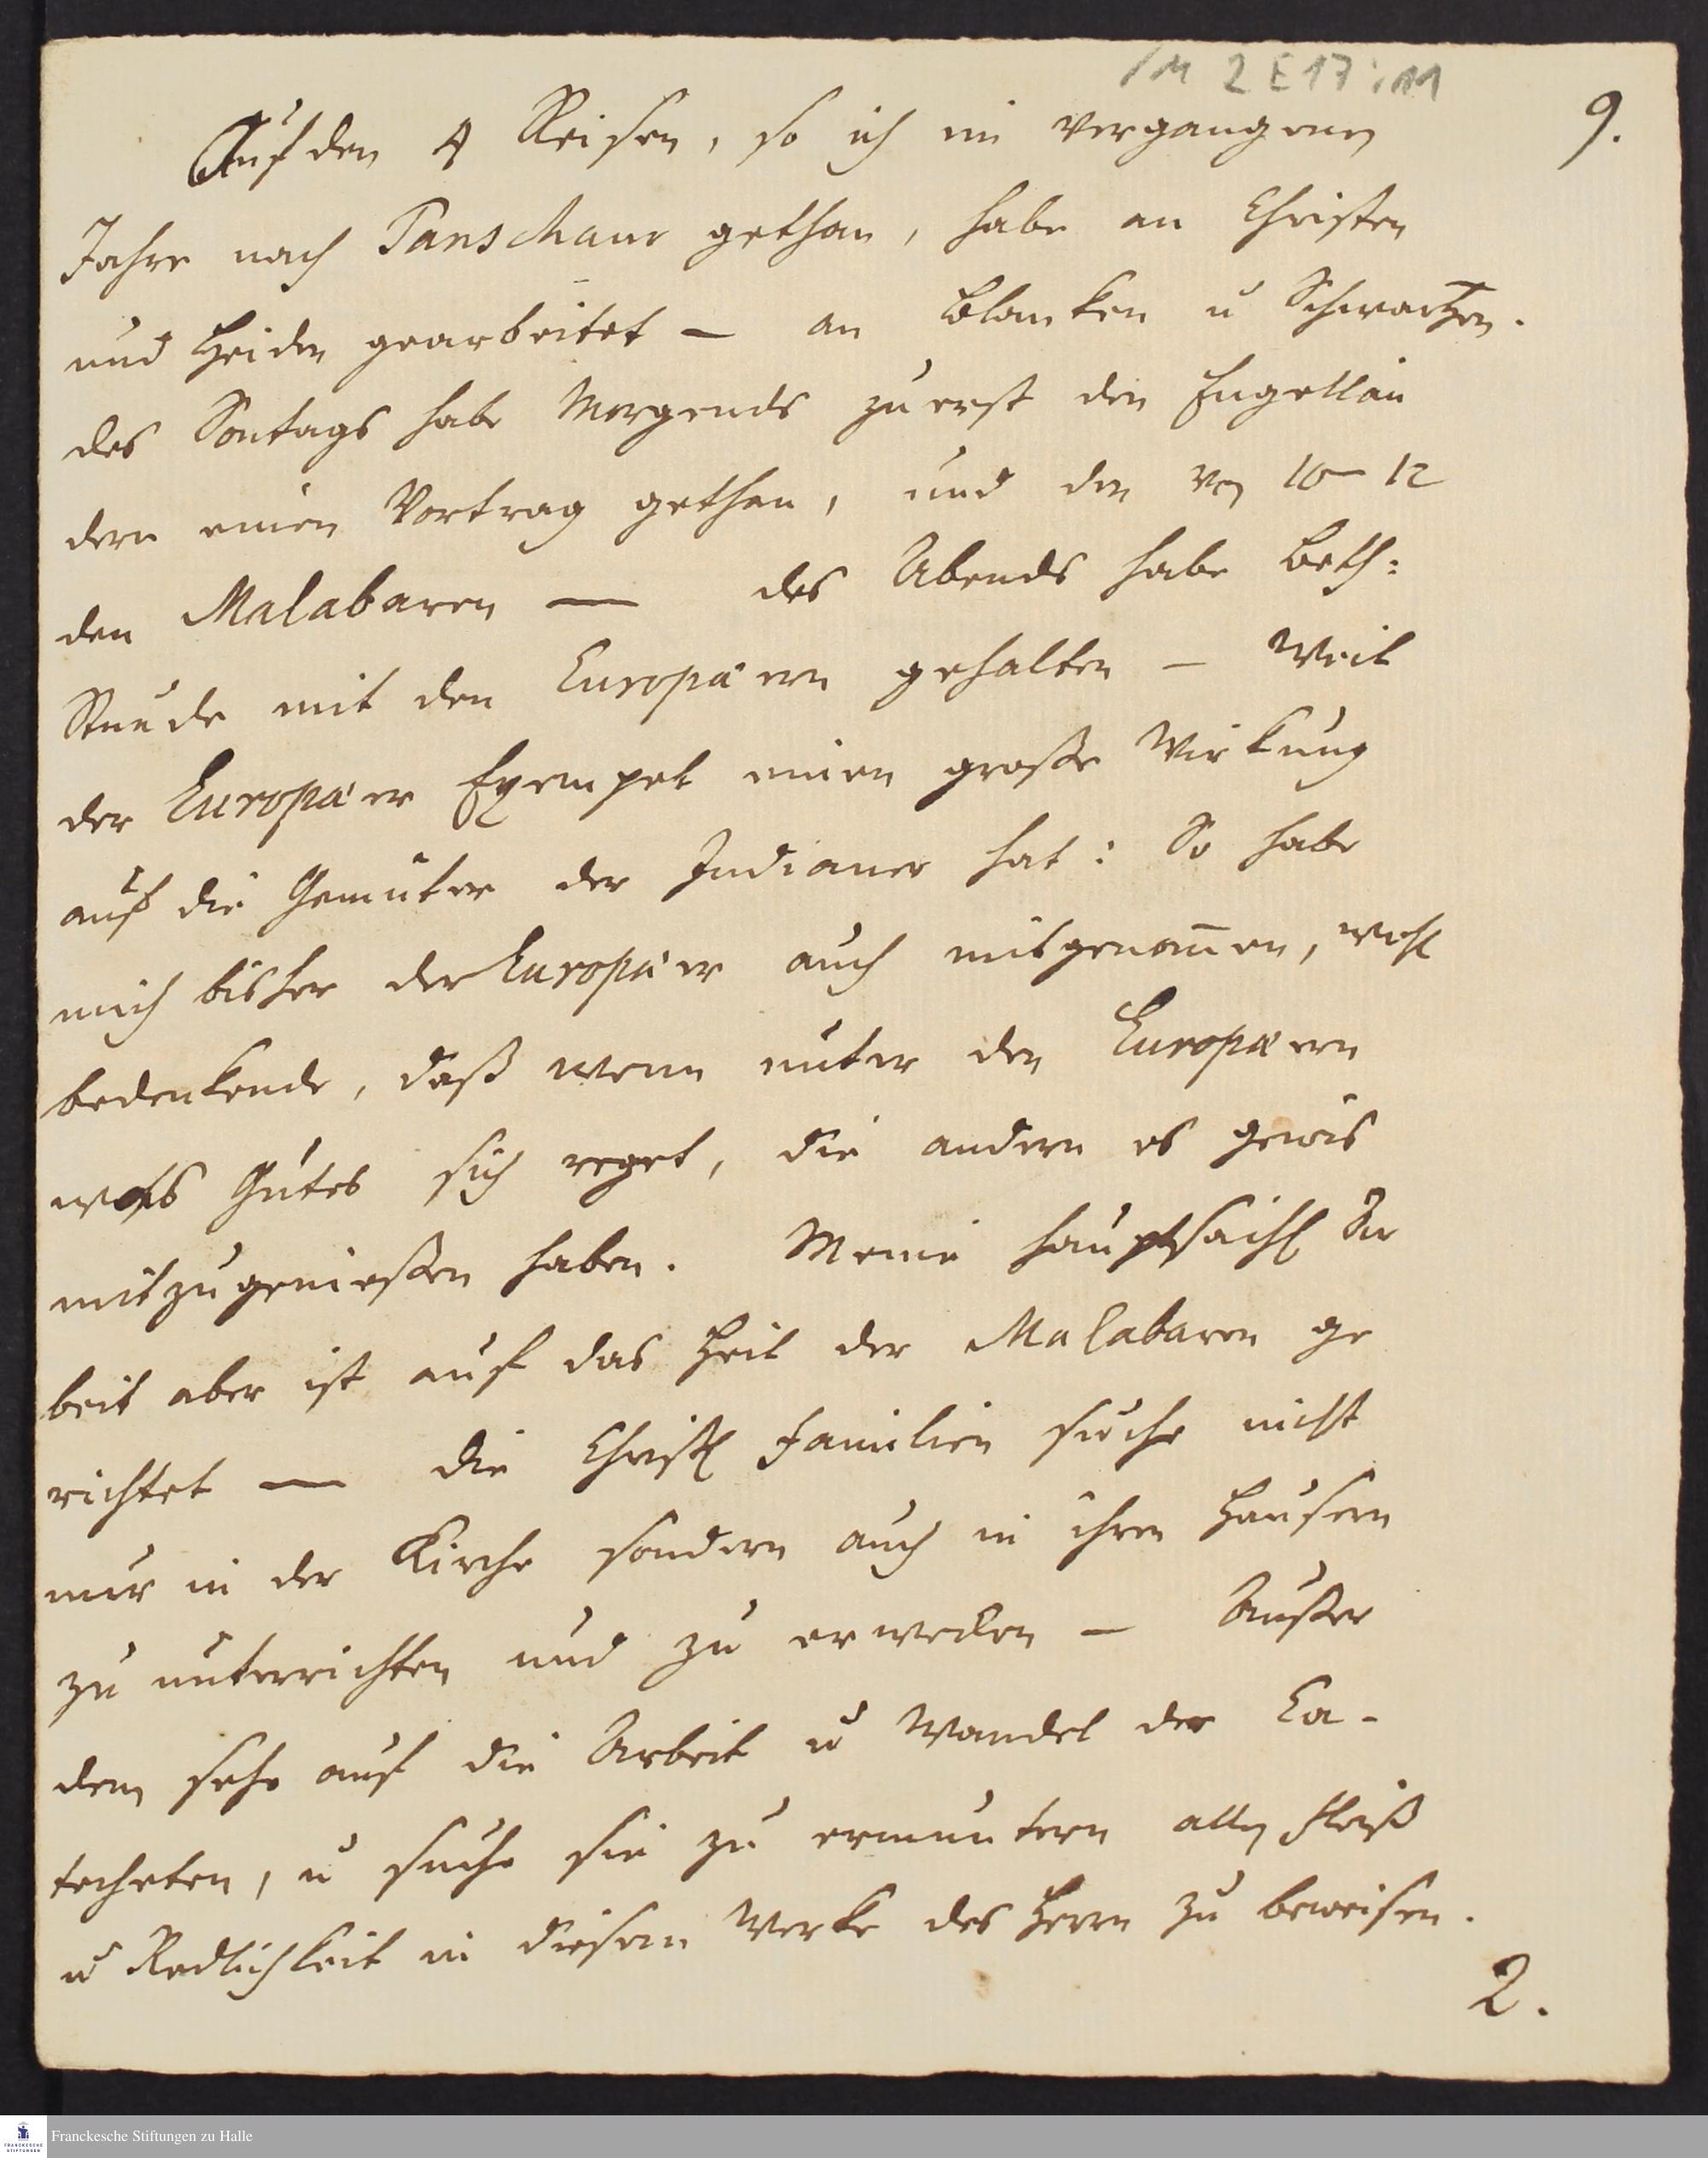 1M 2 E 17 : 11
9.
Auf den 4 Reisen, so ich im vergangenen
Jahre nach Tanschaur gethan, habe an Christen
und Heiden gearbeitet — an Blanken u Schwartzen.
des Sontags habe Morgends zuerst den Engellän
dern einen Vortrag gethan, und den von 10-12
den Malabaren — des Abends habe Beth:
Stunde mit den Europäern gehalten — Weil
der Europäer Exempel einen große Wirkung
auf die Gemüter der Indianer hat: So habe
mich bisher der Europäer auch mitgenom̅en, wohl
bedenkende, daß wenn unter den Europæern
was Gutes sich reget, die andern es gewis
mitzugenießen haben. Meine hauptsächl Ar
beit aber ist auf das Heil der Malabaren ge
richtet — die Christl Familien suche nicht
nur in der Kirche sondern auch in ihren Häusern
zu unterrichten und zu erwecken — Außer
dem sehe auf die Arbeit u Wandel der Ca-
techeten, u suche sie zu ermuntern allen Fleiß
u Redlichkeit in diesem Werke des Herrn zu beweisen.
2.
Franckesche Stiftungen zu Halle
FRANCKESCHE
STIFTUNGEN